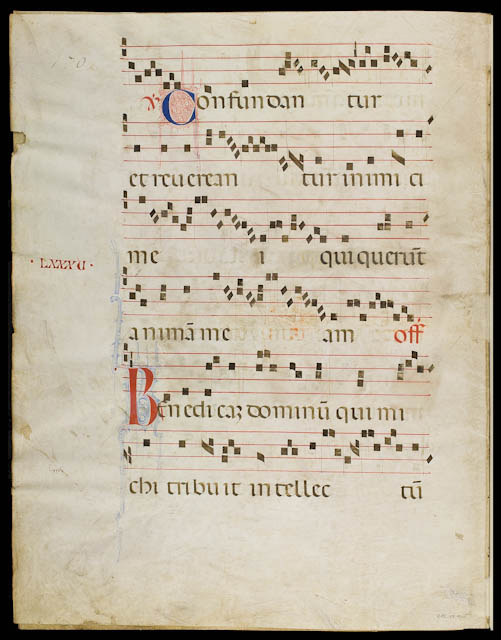 ℣ Confundan tur
et reuerean tur inimi ci
me i qui querūt
· LXXXV ·
animā me am off
Benedicaꝫ dominū qui mi
chi tribuit intellec tū